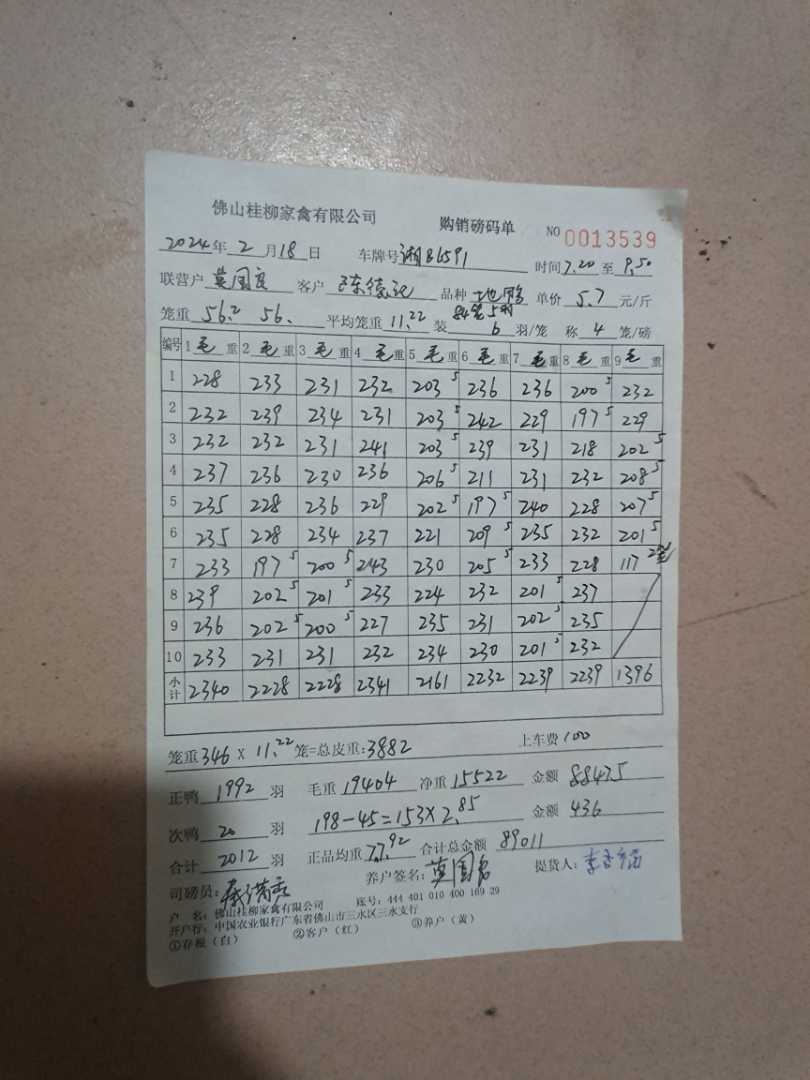 佛山桂柳家禽有限公司 购销磅码单 NO 0013539
2024年2月18日 车牌号湘B6591 时间7.20至9.50
联营户莫国良 客户陈德记 品种 单价5.7元/斤
笼重56.2 56. 平均笼重11.22装 84笼5羽 6羽/笼 称4笼/磅
编号 1毛重 2毛重 3毛重 4毛重 5毛重 6毛重 7毛重 8毛重 9毛重
1 228 233 231 232 203⁵ 236 236 200⁵ 232
2 232 239 234 231 203⁵ 242 229 197⁵ 229
3 232 232 231 241 203⁵ 239 231 218 202⁵
4 237 236 230 236 206⁵ 211 231 232 208⁵
5 235 228 236 229 202⁵ 197⁵ 240 228 207⁵
6 235 228 234 237 221 209⁵ 235 232 201⁵
7 233 197⁵ 200⁵ 243 230 205⁵ 233 228 117 2笼
8 239 202⁵ 201⁵ 233 224 232 201⁵ 237
9 236 202⁵ 200⁵ 227 235 231 202⁵ 235
10 233 231 231 232 234 230 201⁵ 232
小计 2340 2228 2228 2341 2161 2232 2239 2239 1396
笼重346×11.22笼=总皮重:3882 上车费100
正鸭1992羽 毛重19404 净重15522 金额88475
次鸭20羽 198-45=153×2.85 金额436
合计2012羽 正品均重7.792 合计总金额89011
司磅员: 养户签名: 提货人:
户 名:佛山桂柳家禽有限公司 账号:444 401 010 400 169 29
开户行:中国农业银行广东省佛山市三水区三水支行
①存根(白) ②客户(红) ③养户(黄)